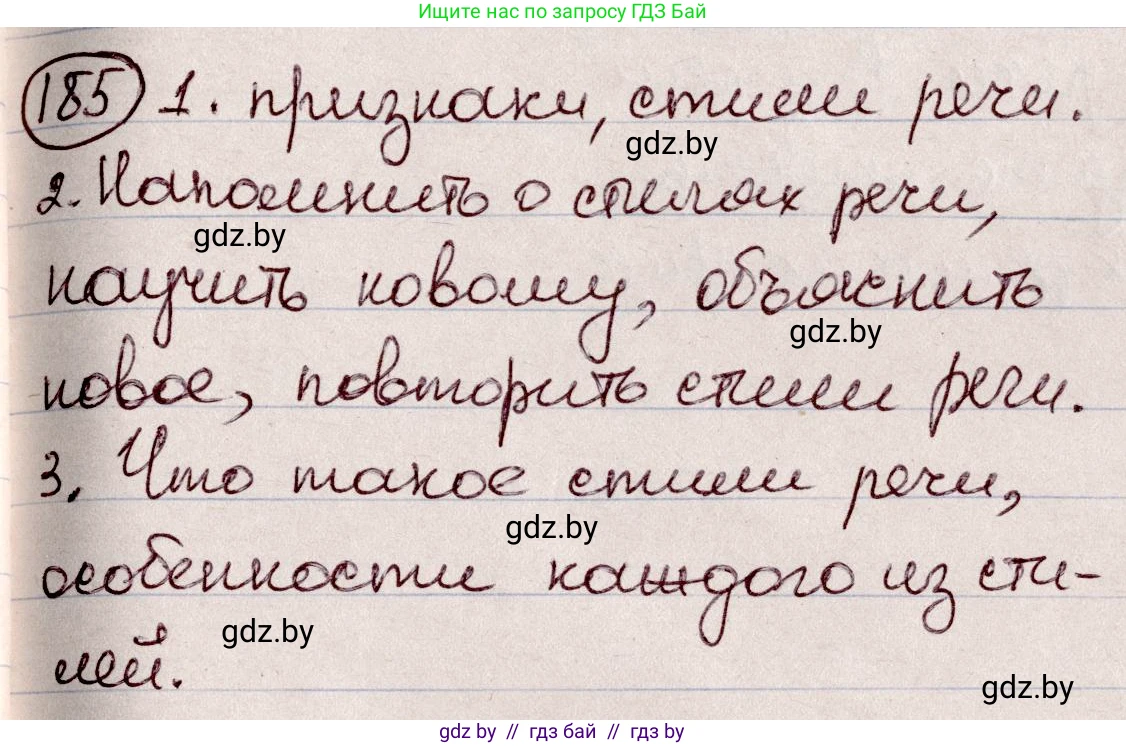 Ищите нас по запросу ГДЗ Бай
185 1. признаки, стили речи.
gdz.by
2. Напомнить о стилях речи,
gdz.by
научить новому, объяснить
gdz.by
новое, повторить стили речи.
3. Что такое стили речи,
gdz.by
особенности каждого из сти-
gdz.by
лей.
gdz.by
gdz by // гдз бай // гdz by